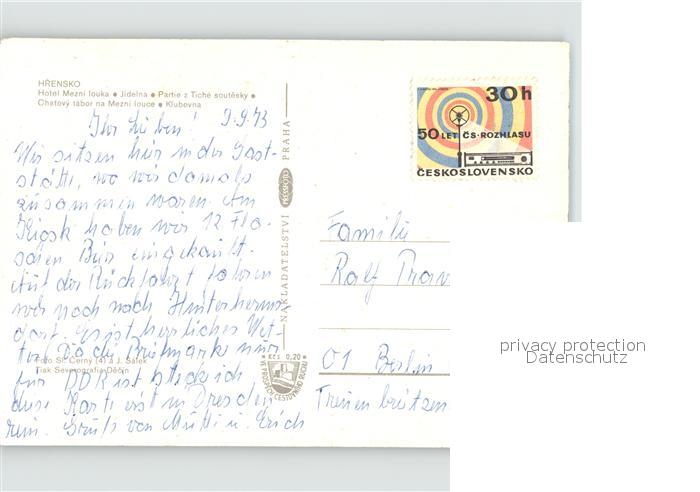 HŘENSKO
Hotel Mezní louka ● Jídelna ● Partie z Tiché soutěsky ●
Chatový tábor na Mezní louce ● Klubovna
Ihr Lieben! 9.9.73
Wir sitzen hier in der Gast-
stätte, wo wir damals
zusammen waren. Am
Kiosk haben wir 12 Fla-
schen Bier eingekauft.
Auf der Rückfahrt fahren
wir noch nach Hinterherms
dorf. Es ist herrliches Wet-
ter. Da die Briefmarke nur
für DDR ist steck ich
diese Karte erst in Dresden
rein. Grüße von Mutti u. Erich
Foto St. Černý (4) a J. Sálek
Tisk Severografia Děčín
NAKLADATELSTVÍ PRESSFOTO PRAHA
Kčs 0,20
30h
50 LET ČS·ROZHLASU
ČESKOSLOVENSKO
Familie
Ralf
01 Berlin
privacy protection
Datenschutz